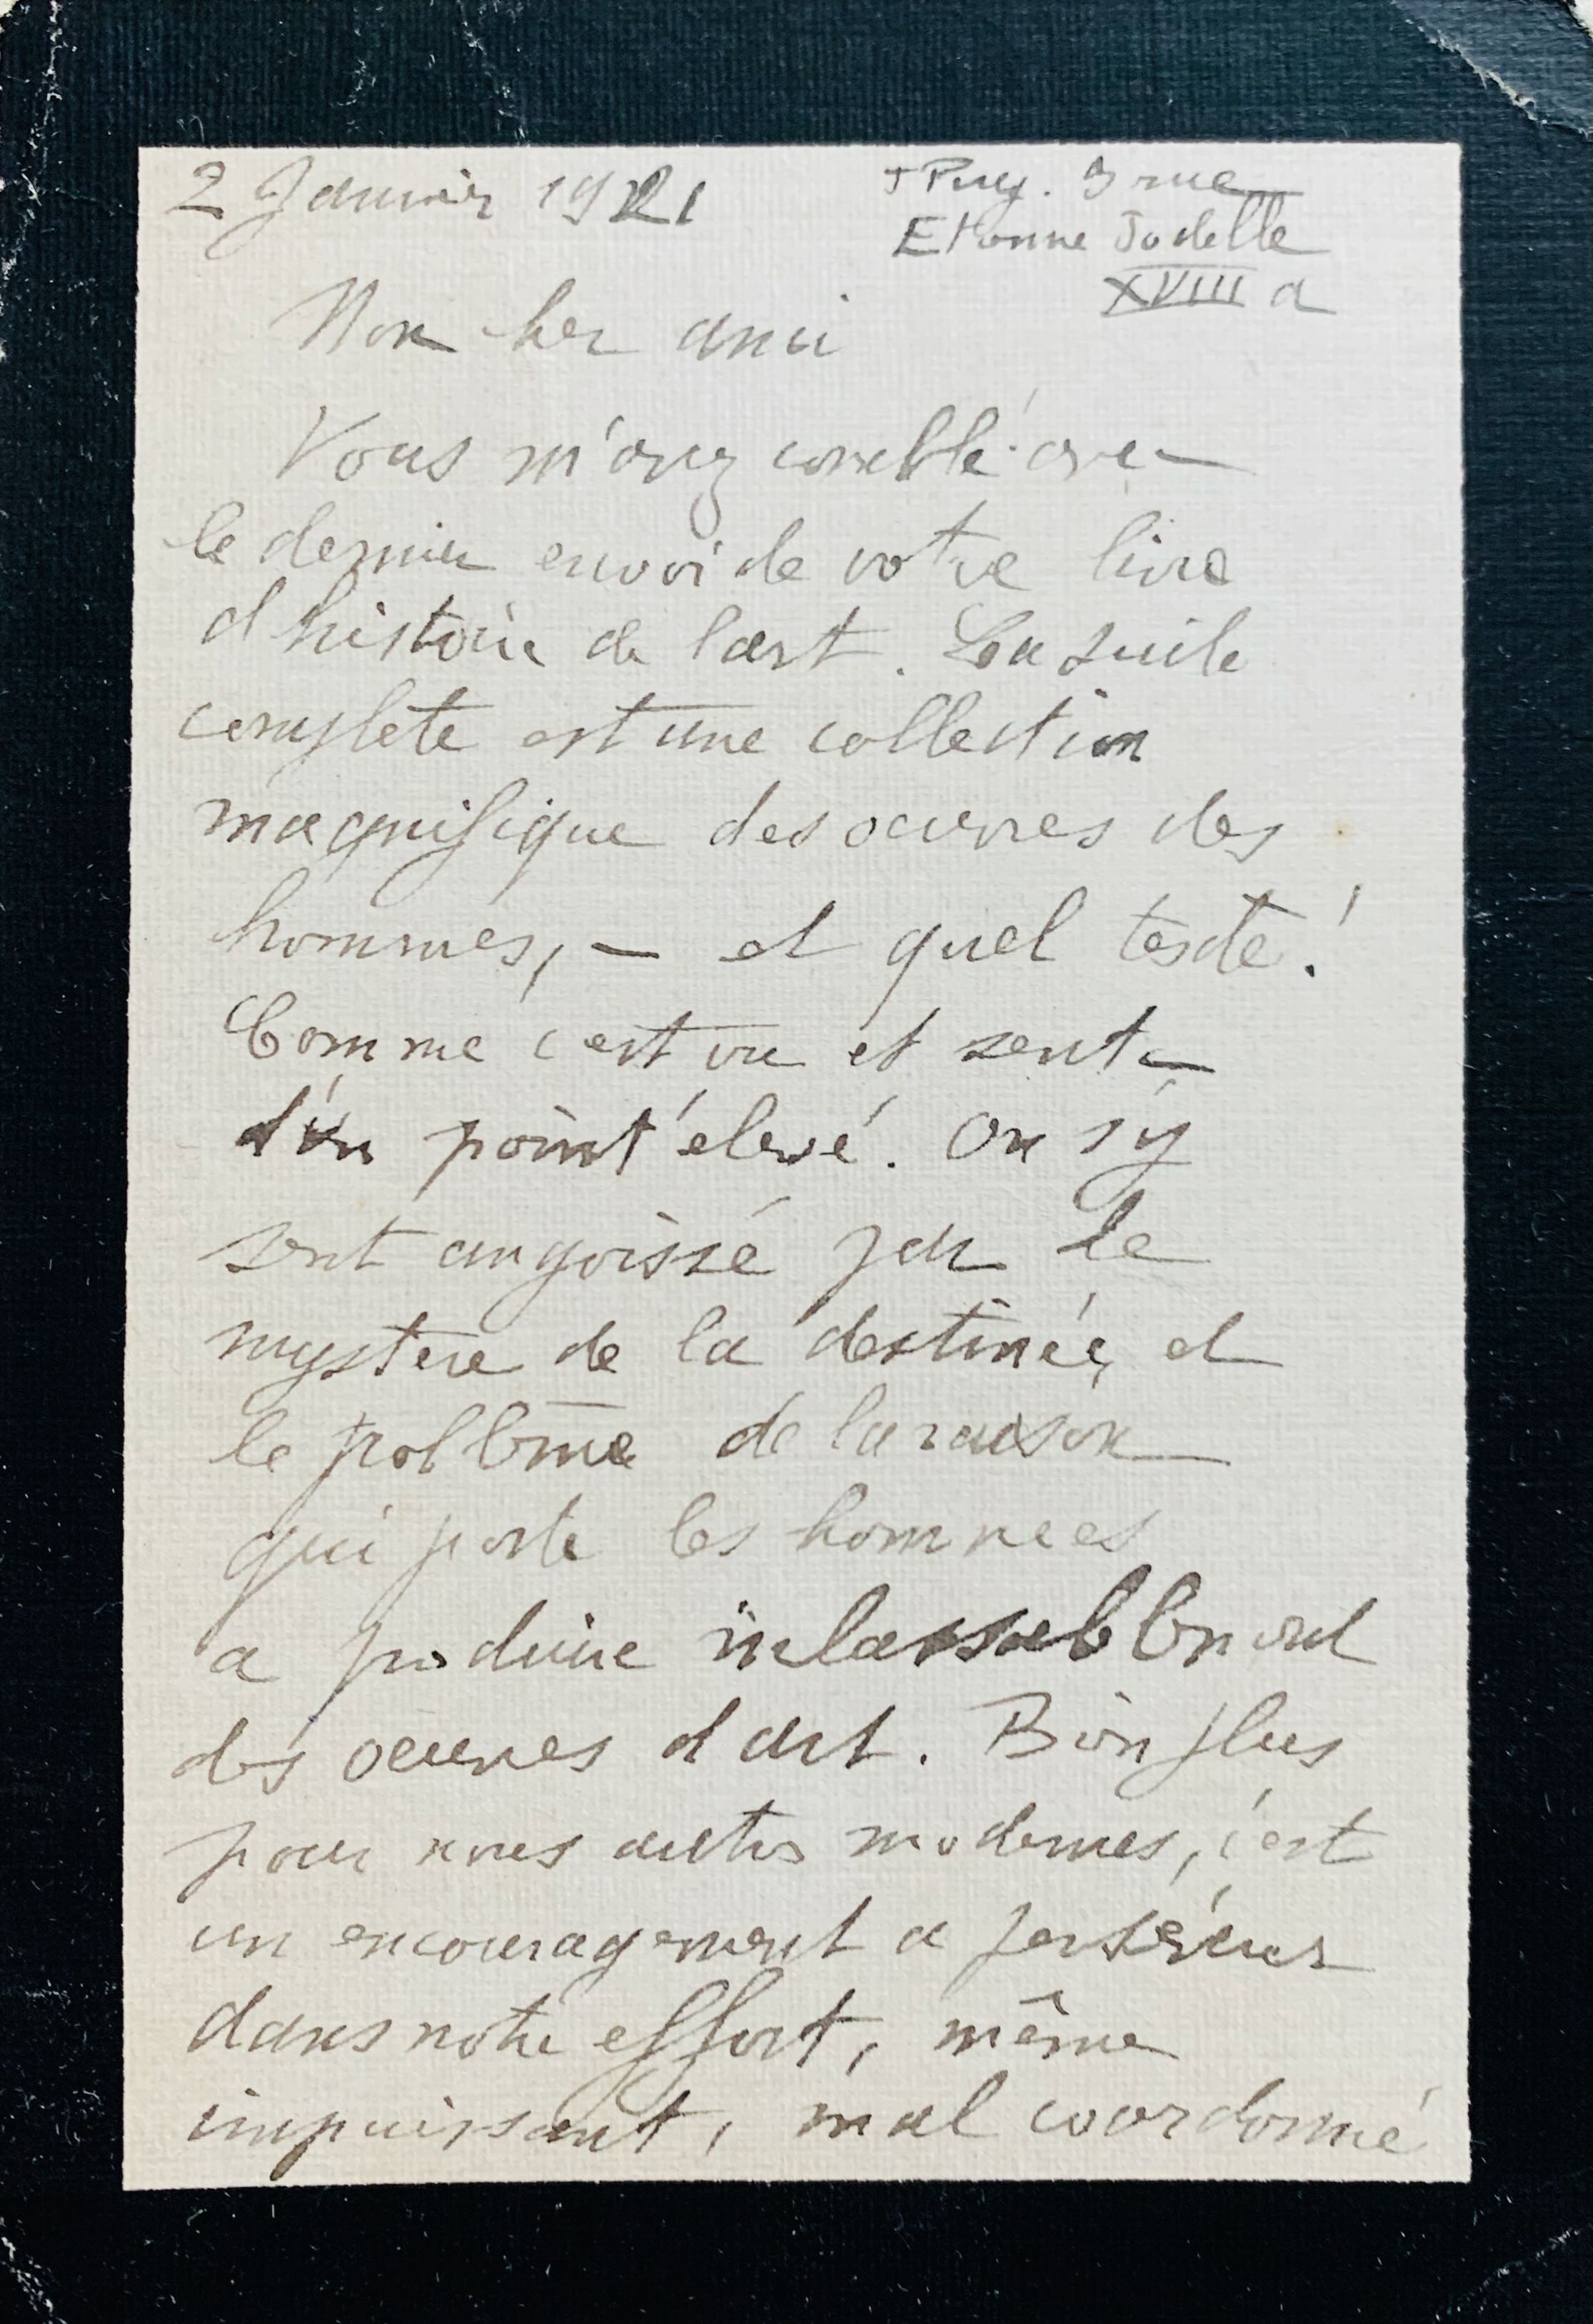 2 Janvier 1921
J Puy. 3 rue
Etienne Jodelle
XVIII a
Mon cher ami
Vous m'avez comblé avec
le dernier envoi de votre livre
d histoire de l'art. La suite
complète est une collection
magnifique des oeuvres des
hommes, — et quel texte !
Comme c'est vu et senti
d'un point élevé. On s'y
sent angoissé par le
mystere de la destinée, et
le problème de la raison
qui porte les hommes
a produire inlassablement
des oeuvres d art. Bien plus
pour nous autres modernes, c'est
un encouragement a persévérer
dans notre effort, même
impuissant, mal coordonné